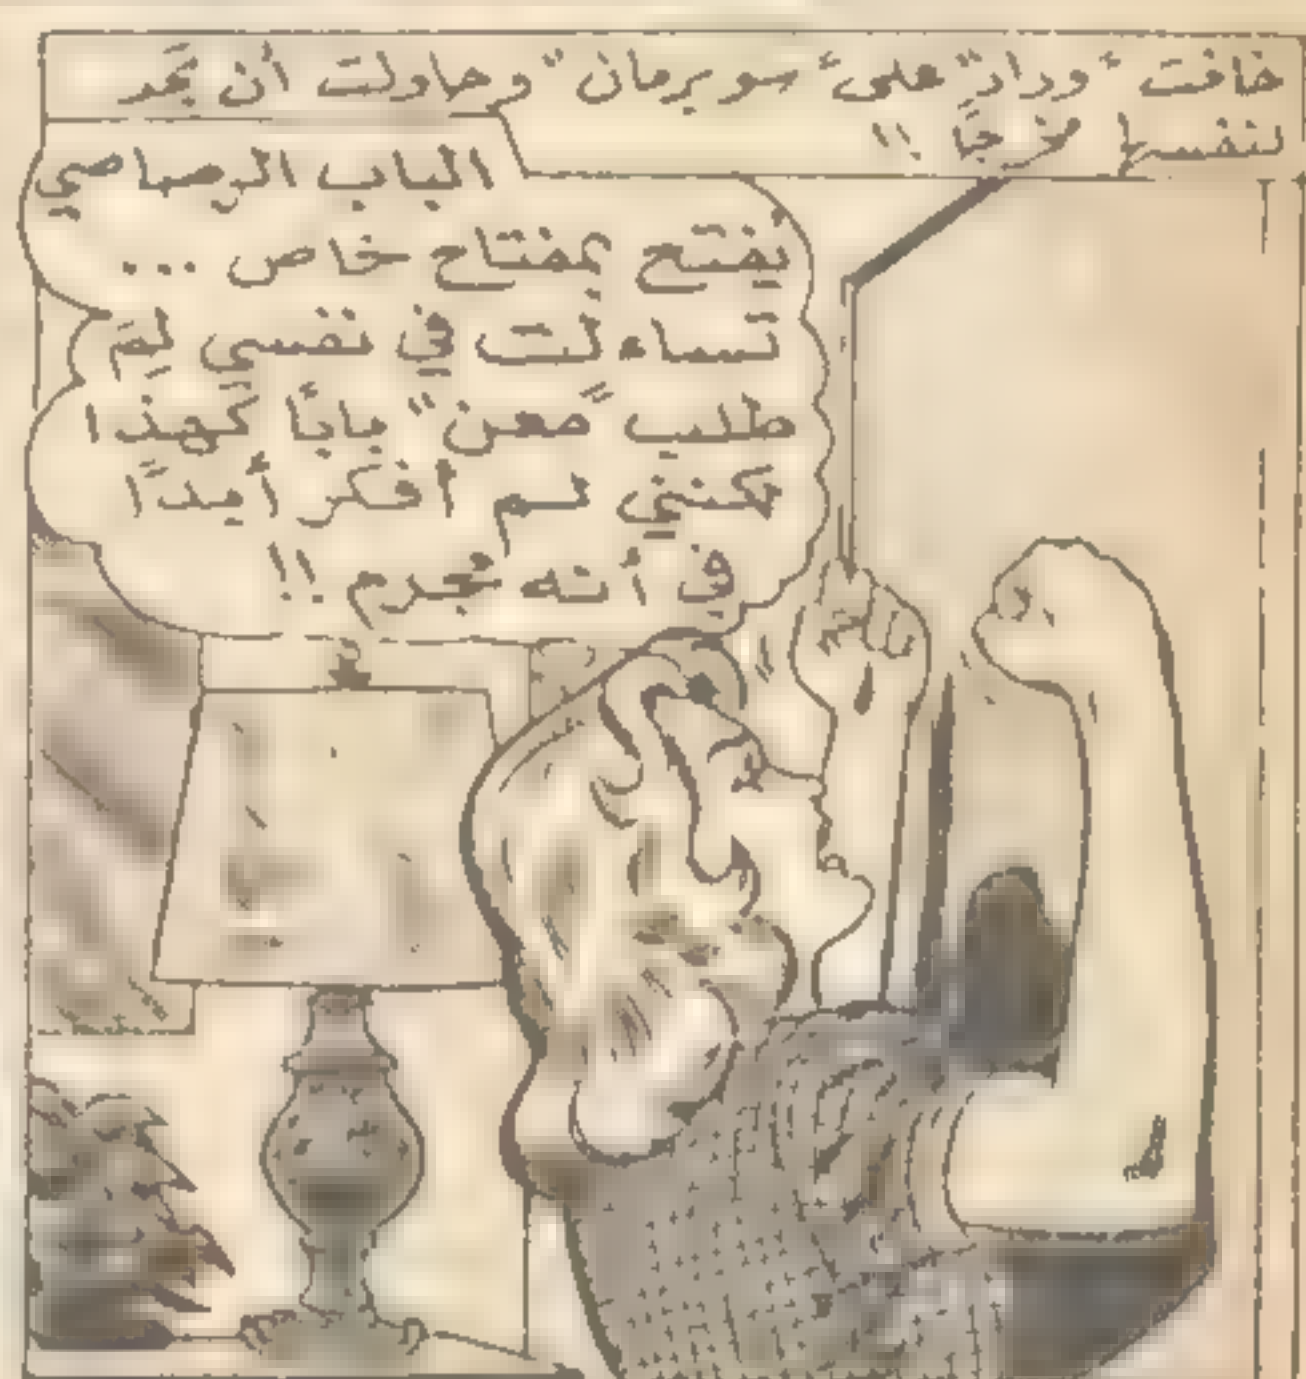 خافت "وداد" على "سوبرمان" وحاولت أن تجد
لنفسها مخرجًا !!
الباب الرصاصي
يفتح بمفتاح خاص ...
تساءلت في نفسي لِمَ
طلب "معن" بابًا كهذا
لكنني لم أفكر أبدًا
في أنه مجرم !!